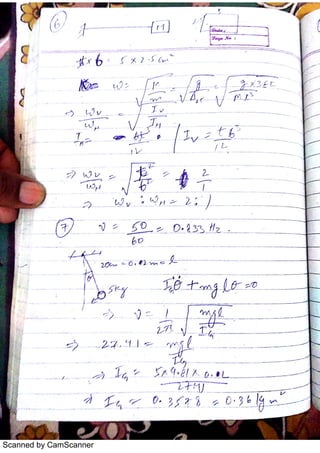 6
M
Date.:
Page No.:
t×b = 5 × 2.5 cm²
K= w = √(k/m) = √(g/Δst) = √(g×3EI/Ml³)
⇒ ωv/ωH = √(Iv/IH)
IH = bt³/12 | Iv = tb³/12
⇒ ωv/ωH = √(b²/t²) = 2/1
⇒ ωv : ωH = 2:1
7 ν = 50/60 = 0.833 Hz.
20cm = 0.02m = l
θ
5kg
Iθ̈ + mglθ = 0
⇒ ν = 1/2π √(mgl/IG)
⇒ 27.41 = mgl/IG
⇒ IG = 5×9.81×0.2/27.41
⇒ IG = 0.3578 = 0.36 kg m²
Scanned by CamScanner